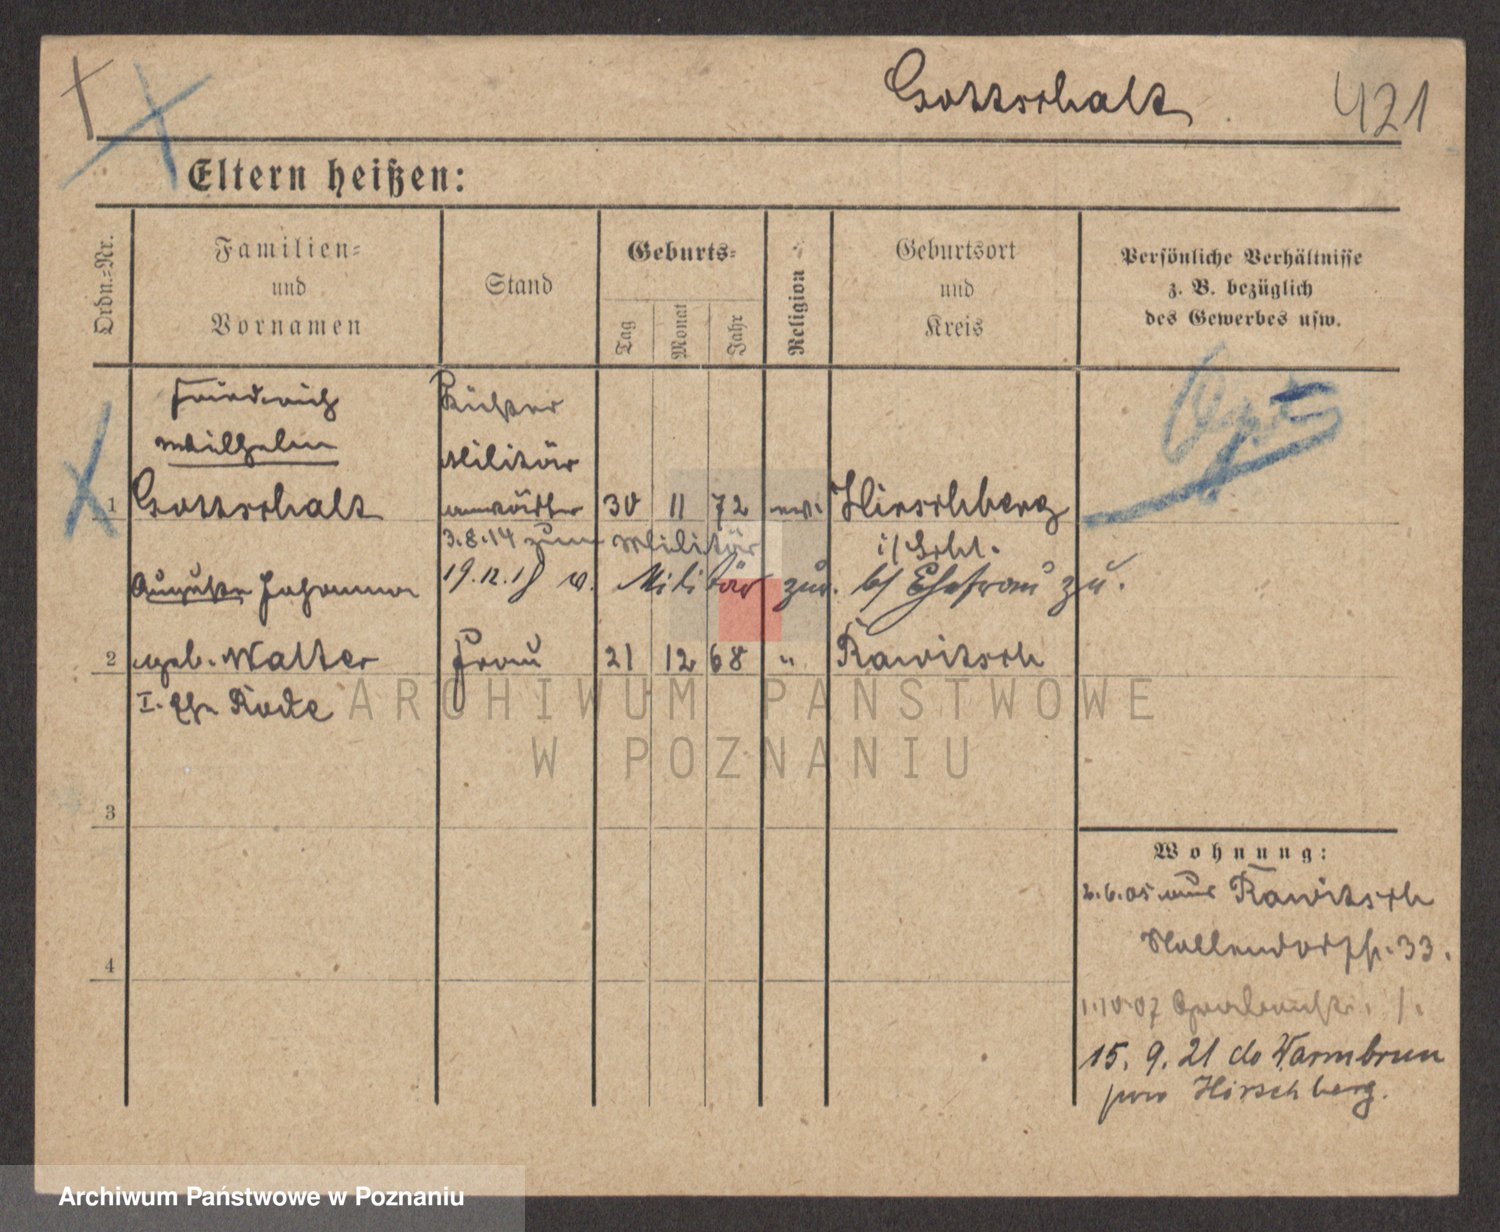 Gottschalk 421
Eltern heißen:
Ordn.=Nr.
Familien=
und
Vornamen
Stand
Geburts=
Tag
Monat
Jahr
Religion
Geburtsort
und
Kreis
Persönliche Verhältnisse
z. B. bezüglich
des Gewerbes usw.
Friedrich
Wilhelm
Militär
1 Gottschalk anwärter 30 11 72 ev. Hirschberg
3.8.14 zum Militär
i/Schl.
Auguste Johanna
19.12.18 v. Militär zur. b/ Ehefrau zu.
2 geb. Walter Frau 21 12 68 " Rawitsch
I. Ehe Rode
3
4
Wohnung:
2.6.05 aus Rawitsch
33.
1.10.07
15. 9. 21 do Warmbrun
pow Hirschberg.
ARCHIWUM PAŃSTWOWE
W POZNANIU
Archiwum Państwowe w Poznaniu